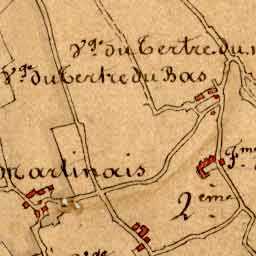 Vge du Tertre du
Vge du Tertre du Bas
martinais
2ème